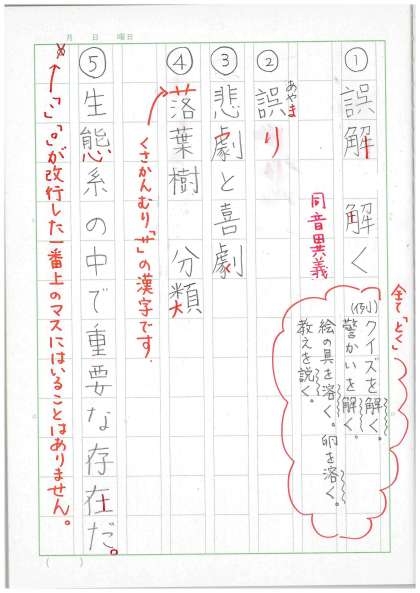 月 日 曜日
① 誤解 解く
全て「とく」
(例)クイズを解く。
警かいを解く。
絵の具を溶く。卵を溶く。
教えを説く。
同音異義
② 誤り
あやま
③ 悲劇と喜劇
④ 落葉樹 分類
くさかんむり「艹」の漢字です。
⑤ 生態系の中で重要な存在だ。
「、」「。」が改行した一番上のマスにはいることはありません。
( )